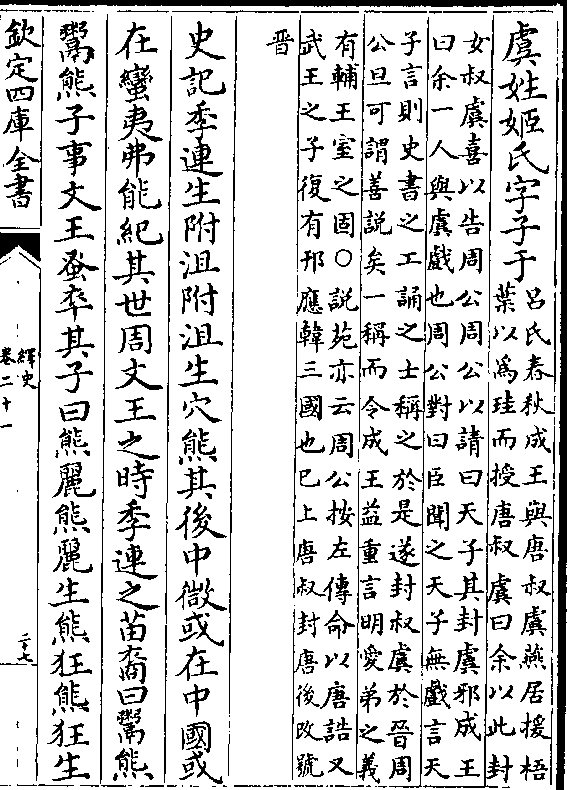 虞姓姬氏字子于
呂氏春秋成王與唐叔虞燕居援梧
葉以為珪而授唐叔虞曰余以此封
女叔虞喜以告周公周公以請曰天子其封虞邪成王
曰余一人與虞戲也周公對曰臣聞之天子無戲言天
子言則史書之工誦之士稱之於是遂封叔虞於晉周
公旦可謂善説矣一稱而令成王益重言明愛弟之義
有輔王室之固○説苑亦云周公按左傳命以唐誥又
武王之子復有邘應韓三國也已上唐叔封唐後改號
晉
史記季連生附沮附沮生穴熊其後中微或在中國或
在蠻夷弗能紀其世周文王之時季連之苗裔曰鬻熊
鬻熊子事文王蚤卒其子曰熊麗熊麗生熊狂熊狂生
欽定四庫全書
繹史
卷二十一
二十七